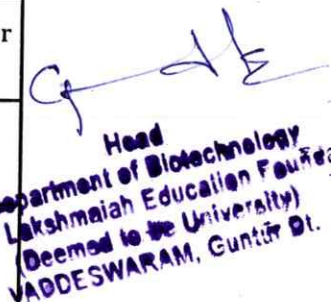 r
Head
epartment of Biotechnology
Lakshmaiah Education Founda
(Deemed to be University)
VADDESWARAM, Guntur Dt.